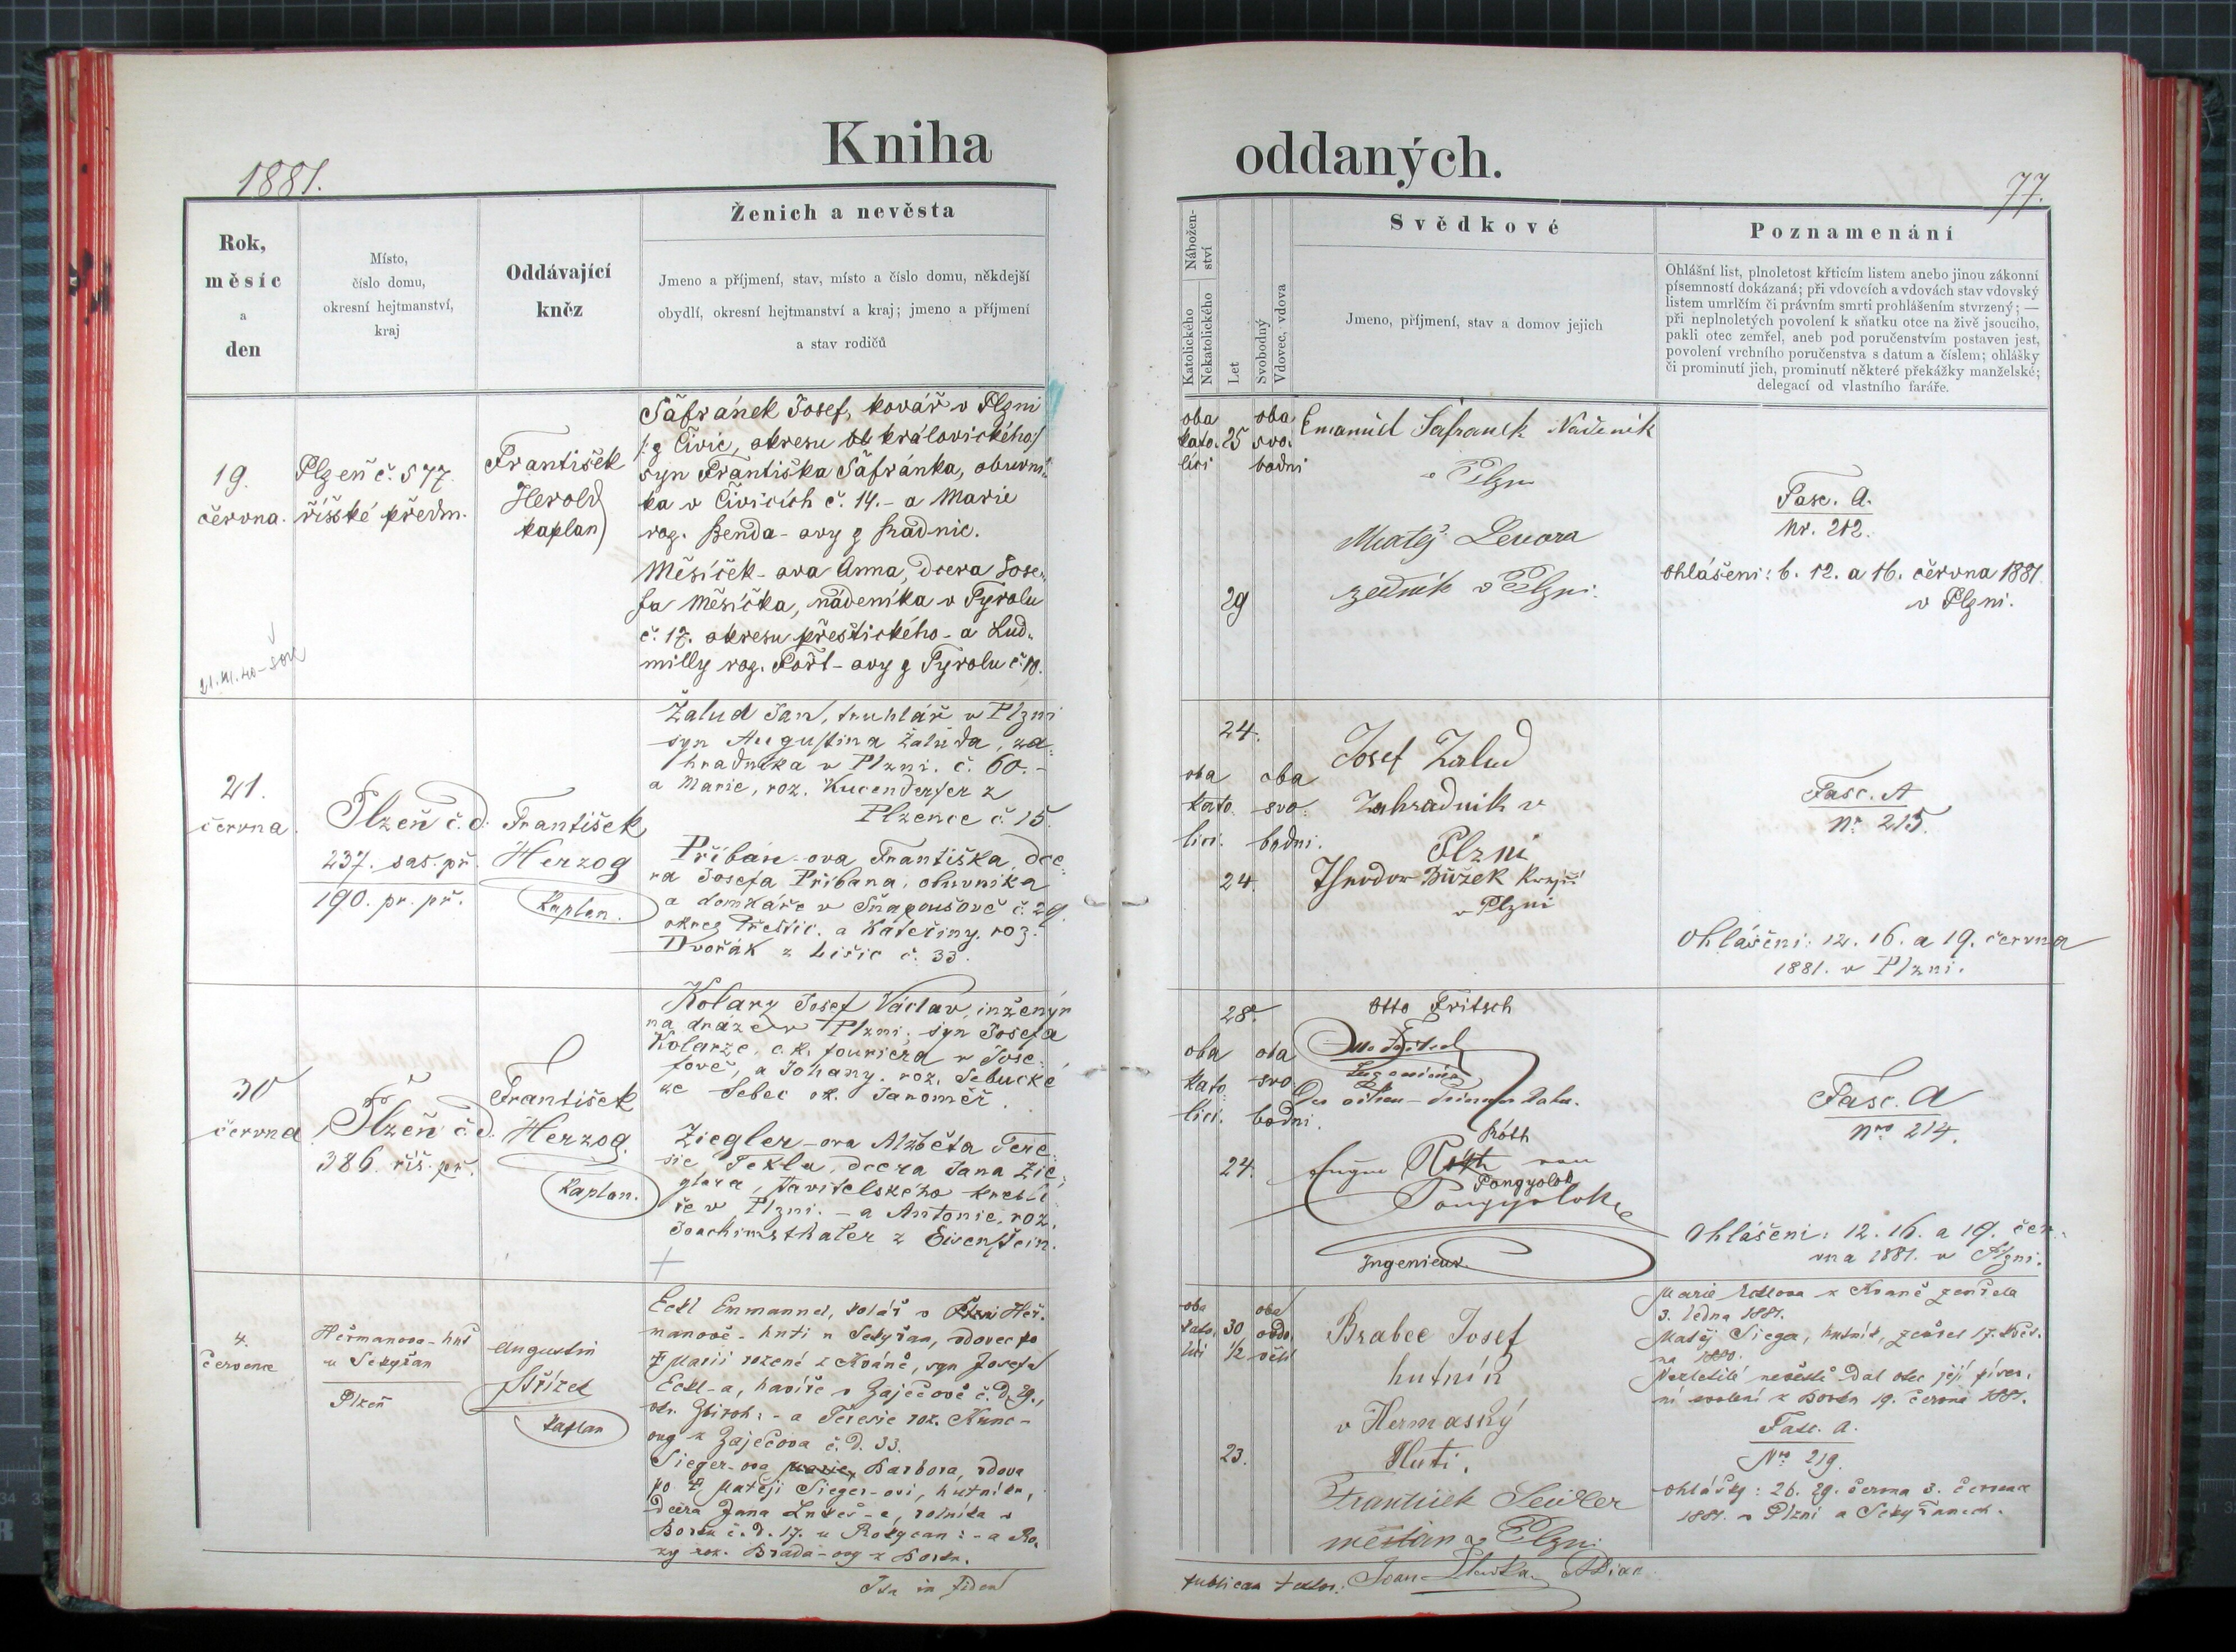 1881.
Kniha
oddaných.
77.
Rok,
měsíc
a
den
Místo,
číslo domu,
okresní hejtmanství,
kraj
Oddávající
kněz
Ženich a nevěsta
Jmeno a příjmení, stav, místo a číslo domu, někdejší
obydlí, okresní hejtmanství a kraj; jmeno a příjmení
a stav rodičů
Nábožen-
ství
Katolického
Nekatolického
Let
Svobodný
Vdovec, vdova
Svědkové
Jmeno, příjmení, stav a domov jejich
Poznamenání
Ohlášní list, plnoletost křticím listem anebo jinou zákonní
písemností dokázaná; při vdovcích a vdovách stav vdovský
listem umrlčím či právním smrti prohlášením stvrzený; —
při neplnoletých povolení k sňatku otce na živě jsoucího,
pakli otec zemřel, aneb pod poručenstvím postaven jest,
povolení vrchního poručenstva s datum a číslem; ohlášky
či prominutí jich, prominutí některé překážky manželské;
delegací od vlastního faráře.
19.
června.
Plzeň č. 577.
říšské předm.
František
Herold
kaplan
Šafránek Josef, kovář v Plzni
/: z Čivic, okresu královického :/
syn Františka Šafránka, obuvní-
ka v Čivicích č. 14. - a Marie
roz. Benda-ovy z Hradnic.
Měsíček-ova Anna, dcera Jose-
fa Měsíčka, nádeníka v Tyrolu
č. 17. okresu přeštického - a Lud-
milly roz. Pořt-ovy z Tyrolu č. 10.
oba
kato.
líci
25
oba
svo.
bodni
29
Emanuel Šafranek Nádeník
v Plzni
Matěj Levora
zedník v Plzni.
Fasc. A.
Nr. 212.
Ohlášeni: 6. 12. a 16. června 1881
v Plzni.
21.
června.
Plzeň č. d.
237. sas. př.
190. pr. př.
František
Herzog
Kaplan.
Žalud Jan, truhlář v Plzni
syn Augustina Žaluda, za-
hradníka v Plzni. č. 60. -
a Marie, roz. Kucenderfer z
Plzence č. 15.
Přibáň-ova Františka, dce-
ra Josefa Přibana, obuvníka
a domkáře v Šnapoušově č. 29.
okres Přeštic. a Kateřiny. roz.
Dvořák z Lišic č. 33.
24.
oba
kato.
lici.
oba
svo.
bodni.
24.
Josef Zalud
Zahradnik v
Plzni
Theodor Bůžek Krejčí
v Plzni
Fasc. A
Nr. 215.
Ohlášeni: 12. 16. a 19. června
1881. v Plzni.
30
června
Plzeň č. d.
386. říš. př.
František
Herzog.
Kaplan.
Kolarz Josef Václav, inženýr
na dráze v Plzni; syn Josefa
Kolarze, c. k. fouriera v Jose-
fově, a Johany. roz. Sebucké
ze Sebec ok. Jaroměř.
Ziegler-ova Alžběta Tere-
sie Tekla, dcera Jana Zie-
glera, stavitelského kresli-
ře v Plzni. - a Antonie, roz.
Joachimsthaler z Eisenstein.
28.
oba
kato
lici.
oba
svo.
bodni.
24.
Otto Fritsch
Otto Fritsch
Róth
Eugen Róth von
Pongyolok
Pongyolok
Ingenieur.
Fasc. A
Nro 214.
Ohlášeni: 12. 16. a 19. čer-
vna 1881. v Plzni.
4.
července
Heřmanova-huť
u Sekyřan
Plzeň
Augustin
Střízek
kaplan
Eckl Emmanuel, kolář v Heř-
manově-huti u Sekyřan, vdovec po
† Marii rozené z Kváně, syn Josefa
Eckl-a, havíře v Zaječově č. D. 29.,
okr. Zbiroh: - a Teresie roz. Kunc-
ovy z Zaječova č. D. 33.
Sieger-ova Barbora, vdova
po † Matěji Sieger-ovi, hutníku,
dcera Jana Lukeš-e, rolníka v
Borku č. D. 17. u Rokycan: - a Ro-
zy roz. Brada-ovy z Borku.
Ita in fidem
oba
kato.
lici
30
1/2
oba
ovdo.
vělí
23.
Brabec Josef
hutník
v Hermaský
Huti.
František Seidler
mešťan v Plzni
Marie Ecklova z Kváně zemřela
3. ledna 1881.
Matěj Siega, hutník, zemřel 17. květ-
na 1880.
Nezletilé nevěstě dal otec její písem-
ní svolení z Borku 19. června 1881.
Fasc. A.
Nro 219.
Ohlášky: 26. 29. června 3. července
1881. v Plzni a Sekyřanech.